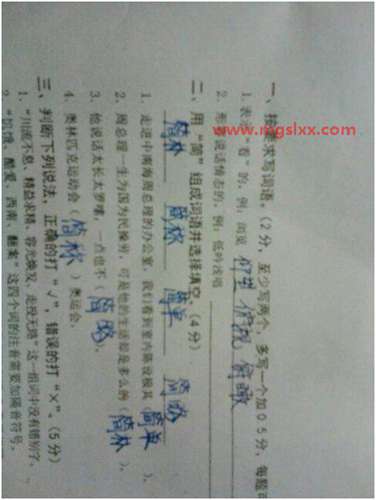 一、按要求写词语。（2分，至少写两个，多写一个加0.5分，每题
1. 表示"看"的，例：闻见 仰望 俯视 鸟瞰
2. 形容说话情态的，例：低吟浅唱
二、用"简"组成词语并选择填空。（4分）
简朴 简称 简单 简略
1. 走进中南海周总理的办公室，我们看到室内陈设极其（简单）。
2. 周总理一生为国为民操劳，可是他的生活却是多么的（简朴）。
3. 他说话太长太罗嗦，一点也不（简略）。
4. 奥林匹克运动会（简称）奥运会。
三、判断下列说法，正确的打"√"，错误的打"×"。（5分）
1. "川流不息、精益求精、容光焕发、走投无路"这一组词中没有错别字。
2. "饥饿、酷爱、西南、翻案"这四个词的注音需要加隔音符号。
www.mgslxx.com